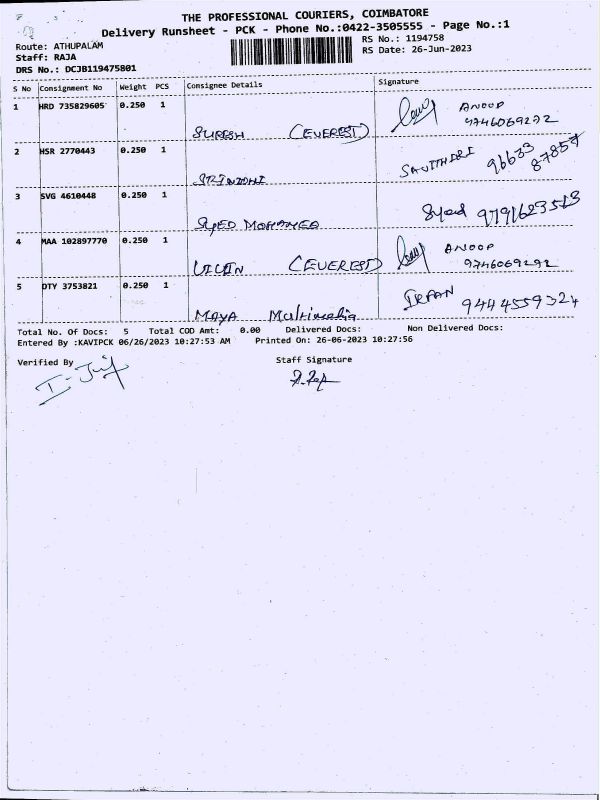 THE PROFESSIONAL COURIERS, COIMBATORE
Delivery Runsheet - PCK - Phone No.:0422-3505555 - Page No.:1
Route: ATHUPALAM
RS No.: 1194758
Staff: RAJA
RS Date: 26-Jun-2023
DRS No.: DCJB119475801
S No Consignment No Weight PCS Consignee Details Signature
1 HRD 735829605 0.250 1 ANOOP
9746069292
SURESH (EVEREST)
2 HSR 2770443 0.250 1 SAVITHIRI 96633 87857
3 SVG 4610448 0.250 1 Syed 9791623513
SYED MOHAMED
4 MAA 102897770 0.250 1 ANOOP
9746069292
(EVEREST)
5 DTY 3753821 0.250 1 IRFAN 9444559324
MAYA Multimedia
Total No. Of Docs: 5 Total COD Amt: 0.00 Delivered Docs: Non Delivered Docs:
Entered By :KAVIPCK 06/26/2023 10:27:53 AM Printed On: 26-06-2023 10:27:56
Verified By Staff Signature